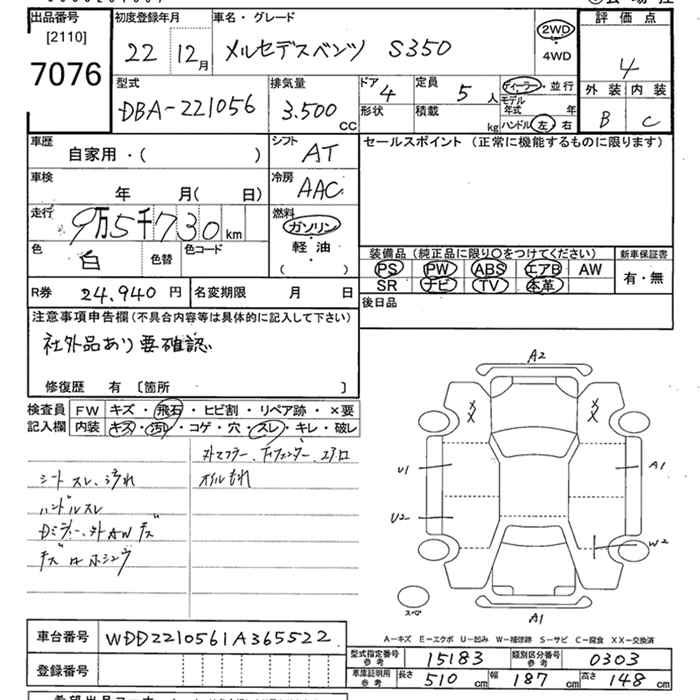 出品番号 初度登録年月 車名・グレード 評価点
[2110] 7076 22 12月 メルセデスベンツ S350 2WD・4WD 4
型式 排気量 ドア 4 定員 5人 ディーラー・並行 外装 内装
DBA-221056 3.500cc 形状 積載 kg モデル年式 年 B C
ハンドル 左 右
車歴 シフト セールスポイント (正常に機能するものに限ります)
自家用・( ) AT
車検 冷房
年 月( 日) AAC
走行 燃料
9万5千730km ガソリン・軽・油
色 色替 色コード ( )
白
装備品(純正品に限り○をつけてください) 新車保証書
PS PW ABS エアB AW 有・無
SR ナビ TV 本革
R券 24,940円 名変期限 月 日 後日品
注意事項申告欄(不具合内容等は具体的に記入して下さい)
社外品あり要確認
修復歴 有 [箇所 ]
検査員 FW キズ・飛石・ヒビ割・リペア跡・×要
記入欄 内装 キズ・汚れ・コゲ・穴・スレ・キレ・破レ
シートスレ、汚れ
ハンドルスレ
オイルもれ
A2
XX XX
U1 A1
U2 W2
スペア A1
A-キズ E-エクボ U-凹み W-補修跡 S-サビ C-腐食 XX-交換済
車台番号 WDD2210561A365522
登録番号
型式指定番号参考 15183 類別区分番号参考 0303
車庫証明用参考 長さ 510cm 幅 187cm 高さ 148cm